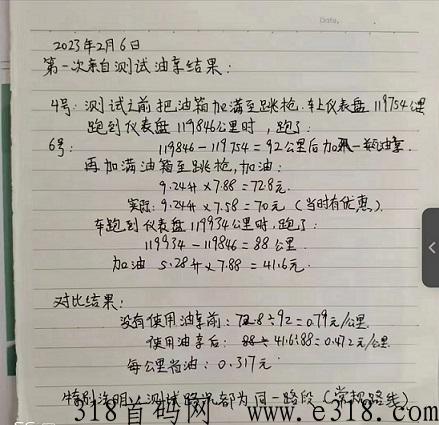 Date.
2023年2月6日
第一次亲自测试油享结果:
4号: 测试之前把油箱加满至跳枪.车上仪表盘119754公里
跑到仪表盘119846公里时,跑了:
6号: 119846-119754=92公里后加一颗油享.
再加满油箱至跳枪,加油:
9.24升×7.88=72.8元.
实际: 9.24升×7.58=70元(当时有优惠).
车跑到仪表盘119934公里时,跑了:
119934-119846=88公里.
加油 5.28升×7.88=41.6元.
对比结果:
没有使用油享前:72.8÷92=0.79元/公里.
使用油享后: 41.6÷88=0.472元/公里.
每公里省油: 0.317元
特别注明:测试路况都为同一路段(常规路线)
318首码网 www.e318.com